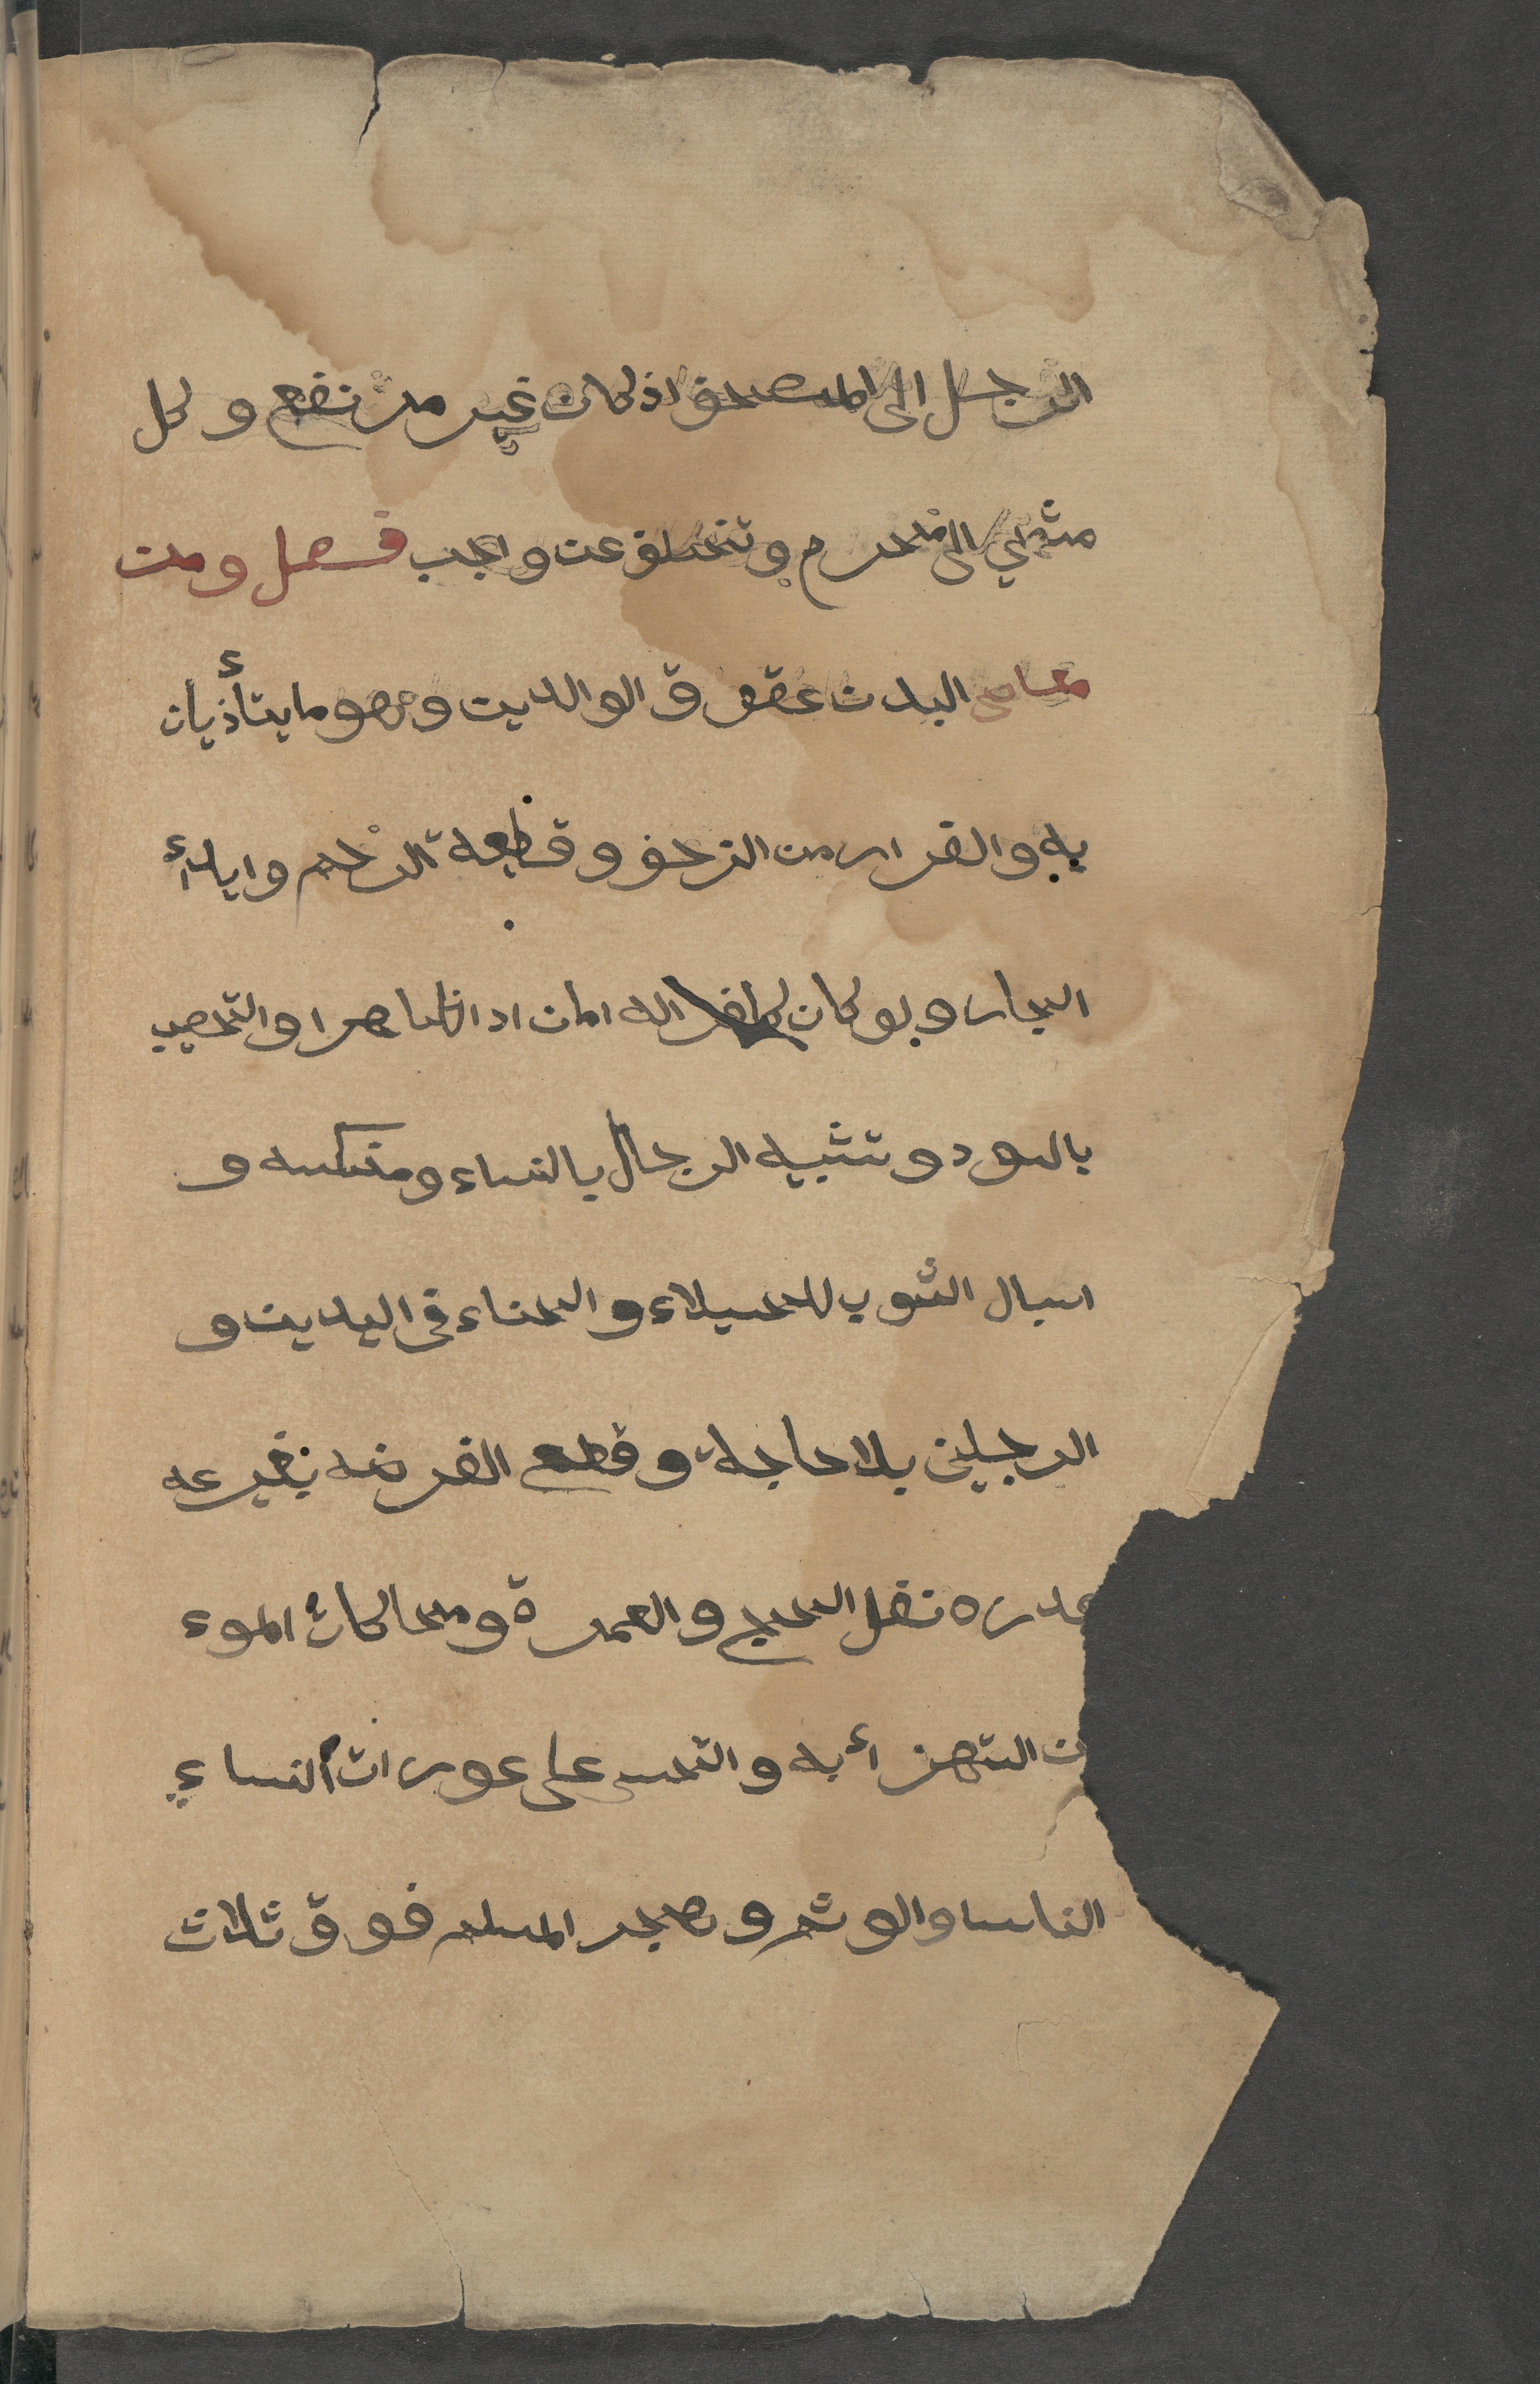 الرجل الى المصحف اذ كان غير مرتفع وكل
مشي الى محرم وتخلف عن واجب فصل ومن
معاصى البدن عقوق الوالدين وهو ما يتأذيان
به والفرار من الزحف وقطيعة الرحم وايذاء
الجار ولو كان كافرا له امان اذا ظاهرا والتحصيب
بالسود وتشبيه الرجال بالنساء وعكسه و
اسبال الثوب للخيلاء والحناء في اليدين و
الرجلين بلا حاجة وقطع الفرض بغير عه
عذره نفل الحج والعمرة ومحاكات الموء
ن استهزأ به والتجسس على عورات النساء
الناس والوشم وهجر المسلم فوق ثلاث